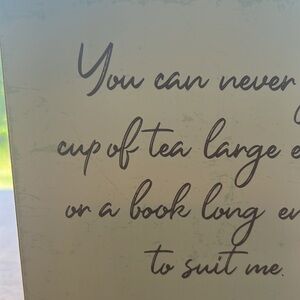 You can never
cup of tea large e
or a book long en
to suit me.